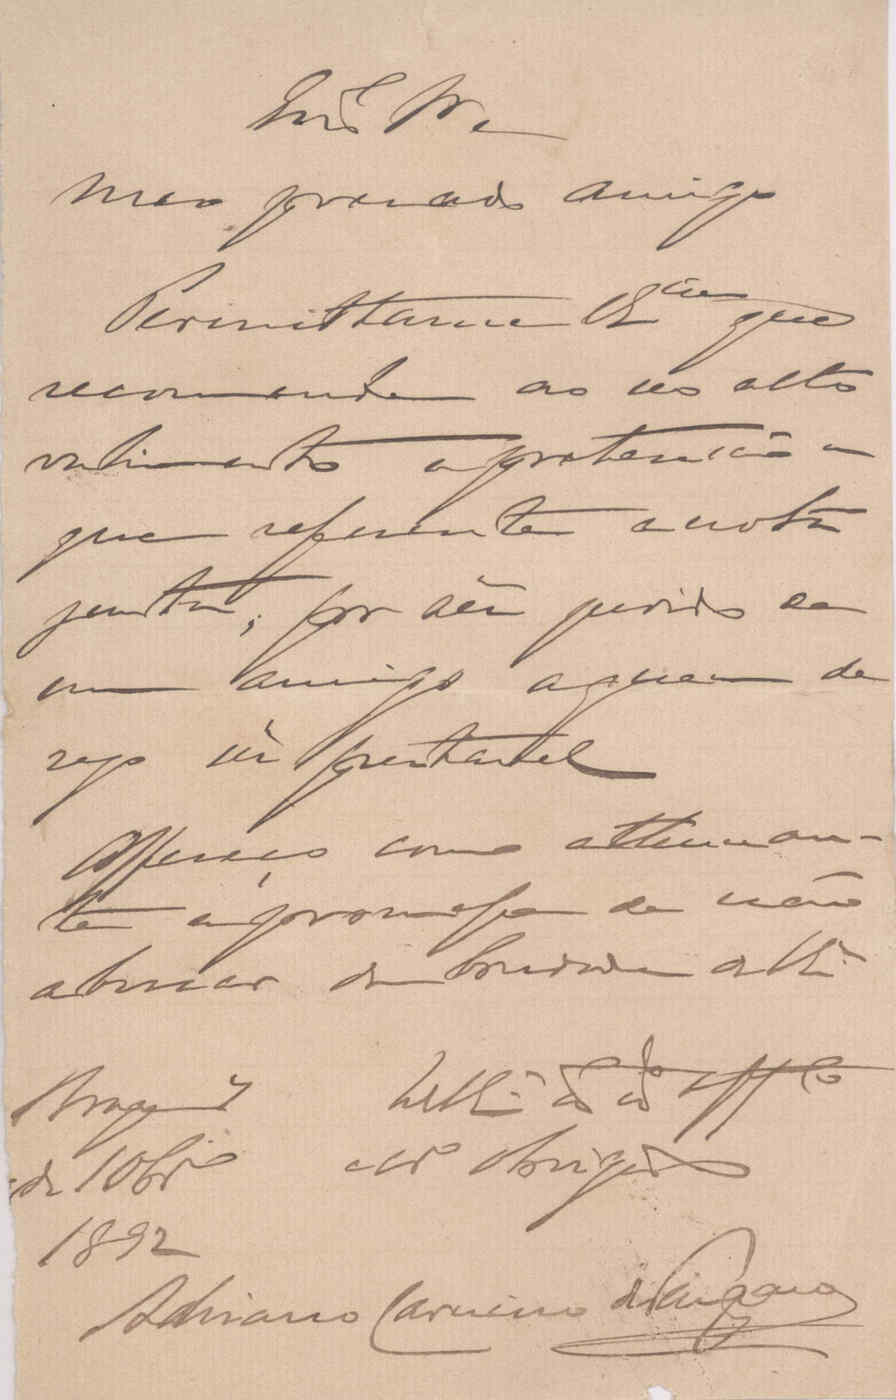 Meu presado amigo
Permitta-me VEx.cia que
recommende ao seu alto
valimento a pretenção a
que se refere a nota
junta, por ser pedido de
um amigo a quem de-
sejo ser prestavel
Offereço como attenuan-
te a promessa de não
abusar da bondade de VEx.ª
Braga
de 10br.o
1892
De VEx.ª am.o att.o
obrigado
Adriano Carneiro de Sampaio